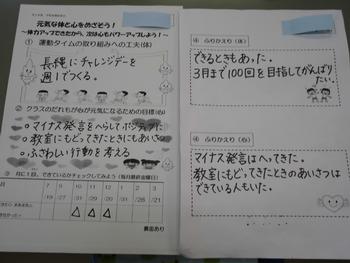 元気な体と心をめざそう！
～体力アップできたから、次は心もパワーアップしよう！～
① 運動タイムの取り組みへの工夫(体)
長縄にチャレンジデーを
週1でつくる。
② クラスのだれもが心が元気になるための目標(心)
・マイナス発言をへらしてポジティブに
・教室にもどってきたときにもあいさつ
・ふさわしい行動を考える
③ 月に1回、できているかチェックしてみよう(毎月最終金曜日)
月
△ △ △
裏面あり
④ ふりかえり(体)
できるときもあった。
3月まで100回を目指してがんばり
たい。
④ ふりかえり(心)
マイナス発言はへってきた。
教室にもどってきたときのあいさつは
できている人もいた。